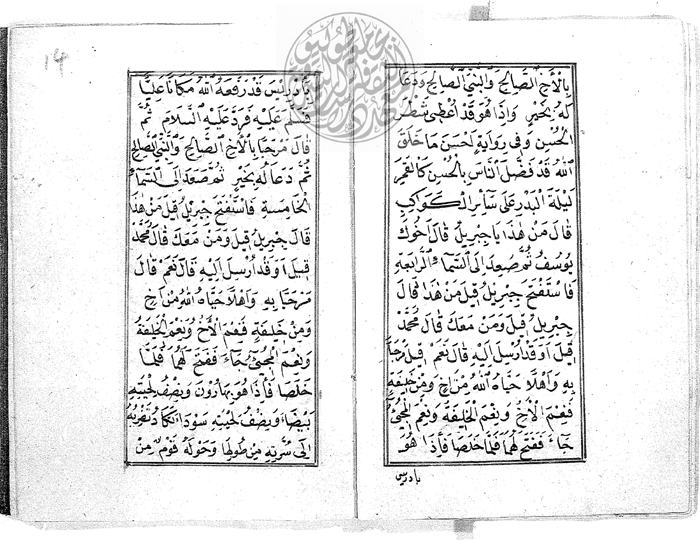 بِالْأَخِ الصَّالِحِ وَالنَّبِيِّ الصَّالِحِ وَدَعَا
لَهُ بِخَيْرٍ وَإِذَا هُوَ قَدْ أُعْطِيَ شَطْرَ
الْحُسْنِ وَفِي رِوَايَةٍ أَحْسَنَ مَا خَلَقَ
اللّٰهُ قَدْ فَضَّلَ النَّاسَ بِالْحُسْنِ كَالْقَمَرِ
لَيْلَةَ الْبَدْرِ عَلَى سَائِرِ الْكَوَاكِبِ
قَالَ مَنْ هٰذَا يَا جِبْرِيلُ قَالَ أَخُوكَ
يُوسُفُ ثُمَّ صَعِدَ إِلَى السَّمَاءِ الرَّابِعَةِ
فَاسْتَفْتَحَ جِبْرِيلُ قِيلَ مَنْ هٰذَا قَالَ
جِبْرِيلُ قِيلَ وَمَنْ مَعَكَ قَالَ مُحَمَّدٌ
قِيلَ أَوَقَدْ أُرْسِلَ إِلَيْهِ قَالَ نَعَمْ قِيلَ مَرْحَبًا
بِهِ وَأَهْلًا حَيَّاهُ اللّٰهُ مِنْ أَخٍ وَمِنْ خَلِيفَةٍ
فَنِعْمَ الْأَخُ وَنِعْمَ الْخَلِيفَةُ وَنِعْمَ الْمَجِيءُ
جَاءَ فَفَتَحَ لَهُمَا فَلَمَّا خَلَصَا فَإِذَا هُوَ
بادريس
14
بِإِدْرِيسَ قَدْ رَفَعَهُ اللّٰهُ مَكَانًا عَلِيًّا
فَسَلَّمَ عَلَيْهِ فَرَدَّ عَلَيْهِ السَّلَامَ ثُمَّ
قَالَ مَرْحَبًا بِالْأَخِ الصَّالِحِ وَالنَّبِيِّ الصَّالِحِ
ثُمَّ دَعَا لَهُ بِخَيْرٍ ثُمَّ صَعِدَ إِلَى السَّمَاءِ
الْخَامِسَةِ فَاسْتَفْتَحَ جِبْرِيلُ قِيلَ مَنْ هٰذَا
قَالَ جِبْرِيلُ قِيلَ وَمَنْ مَعَكَ قَالَ مُحَمَّدٌ
قِيلَ أَوَقَدْ أُرْسِلَ إِلَيْهِ قَالَ نَعَمْ قَالَ
مَرْحَبًا بِهِ وَأَهْلًا حَيَّاهُ اللّٰهُ مِنْ أَخٍ
وَمِنْ خَلِيفَةٍ فَنِعْمَ الْأَخُ وَنِعْمَ الْخَلِيفَةُ
وَنِعْمَ الْمَجِيءُ جَاءَ فَفَتَحَ لَهُمَا فَلَمَّا
خَلَصَا فَإِذَا هُوَ بِهَارُونَ وَنِصْفُ لِحْيَتِهِ
بَيْضَاءُ وَنِصْفُ لِحْيَتِهِ سَوْدَاءُ تَكَادُ تَضْرِبُ
إِلَى سُرَّتِهِ مِنْ طُولِهَا وَحَوْلَهُ قَوْمٌ مِنْ